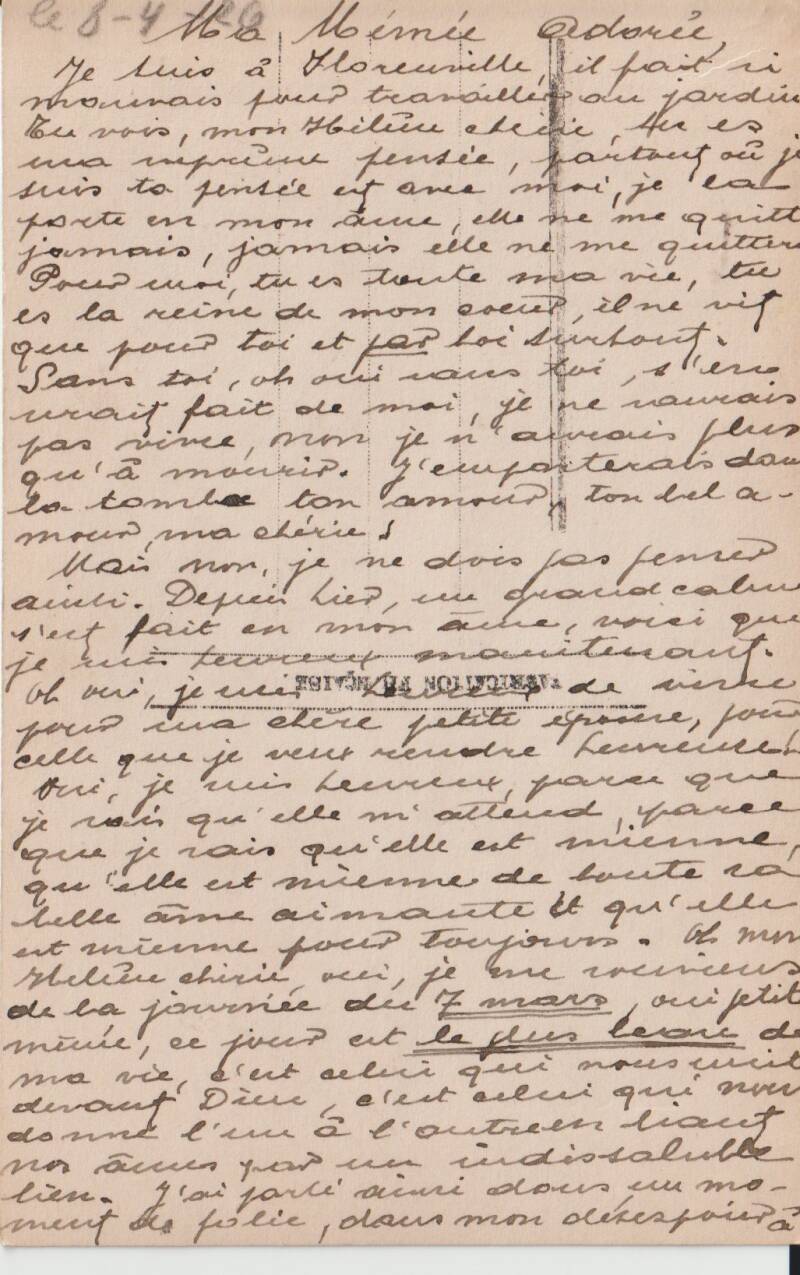 le 8-4-26
Ma Mémée Adorée,
Je suis à Florenville, il fait si
mauvais pour travailler au jardin
Tu vois, mon Hélène chérie, tu es
ma suprême pensée, partout où je
suis ta pensée est avec moi, je la
porte en mon âme, elle ne me quitt
jamais, jamais elle ne me quittera
Pour moi, tu es toute ma vie, tu
es la reine de mon coeur, il ne vit
que pour toi et par toi surtout.
Sans toi, oh oui sans toi, s'en
serait fait de moi, je ne saurais
pas vivre, non je n'aurais plus
qu'à mourir. J'emporterais dans
la tombe ton amour, ton bel a-
mour, ma chérie!
Mais non, je ne dois pas penser
ainsi. Depuis hier, un grand calme
s'est fait en mon âme, voici que
je suis heureux maintenant.
Oh oui, je suis heureux de vivre
FABRICATION FRANÇAISE
pour ma chère petite épouse, pour
celle que je veux rendre heureuse!
Oui, je suis heureux, parce que
je sais qu'elle m'attend, parce
que je sais qu'elle est mienne,
qu'elle est mienne de toute sa
belle âme aimante et qu'elle
est mienne pour toujours. Oh mon
Hélène chérie, oui, je me souviens
de la journée du 7 mars, oui petit
mémée, ce jour est le plus beau de
ma vie, c'est celui qui nous unit
devant Dieu, c'est celui qui nous
donne l'un à l'autre en liant
nos âmes par un indissoluble
lien. J'ai parlé ainsi dans un mo-
ment de folie, dans mon désespoir à